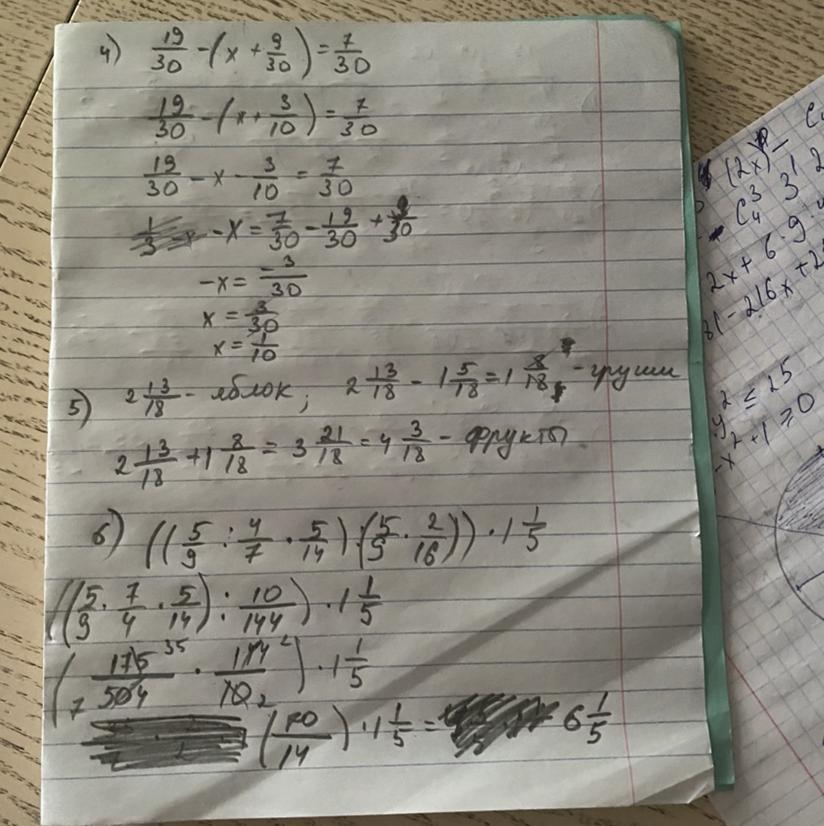 4) 19/30 - (x + 9/30) = 7/30
19/30 - (x + 3/10) = 7/30
19/30 - x - 3/10 = 7/30
-x = 7/30 - 19/30 + 9/30
-x = -3/30
x = 3/30
x = 1/10
5) 2 13/18 - яблок; 2 13/18 - 1 5/18 = 1 8/18 - груши
2 13/18 + 1 8/18 = 3 21/18 = 4 3/18 - фрукты
6) ((5/9 : 4/7 · 5/14) : (5/9 · 2/16)) · 1 1/5
((5/9 · 7/4 · 5/14) : 10/144) · 1 1/5
(175/504 · 144/10) · 1 1/5
(70/14) · 1 1/5 = 6 1/5
(2x)
C₄³ 3¹ 2
2x + 6 · 9 ·
81 - 216x + 2
y² ≤ 25
-x² + 1 ≥ 0